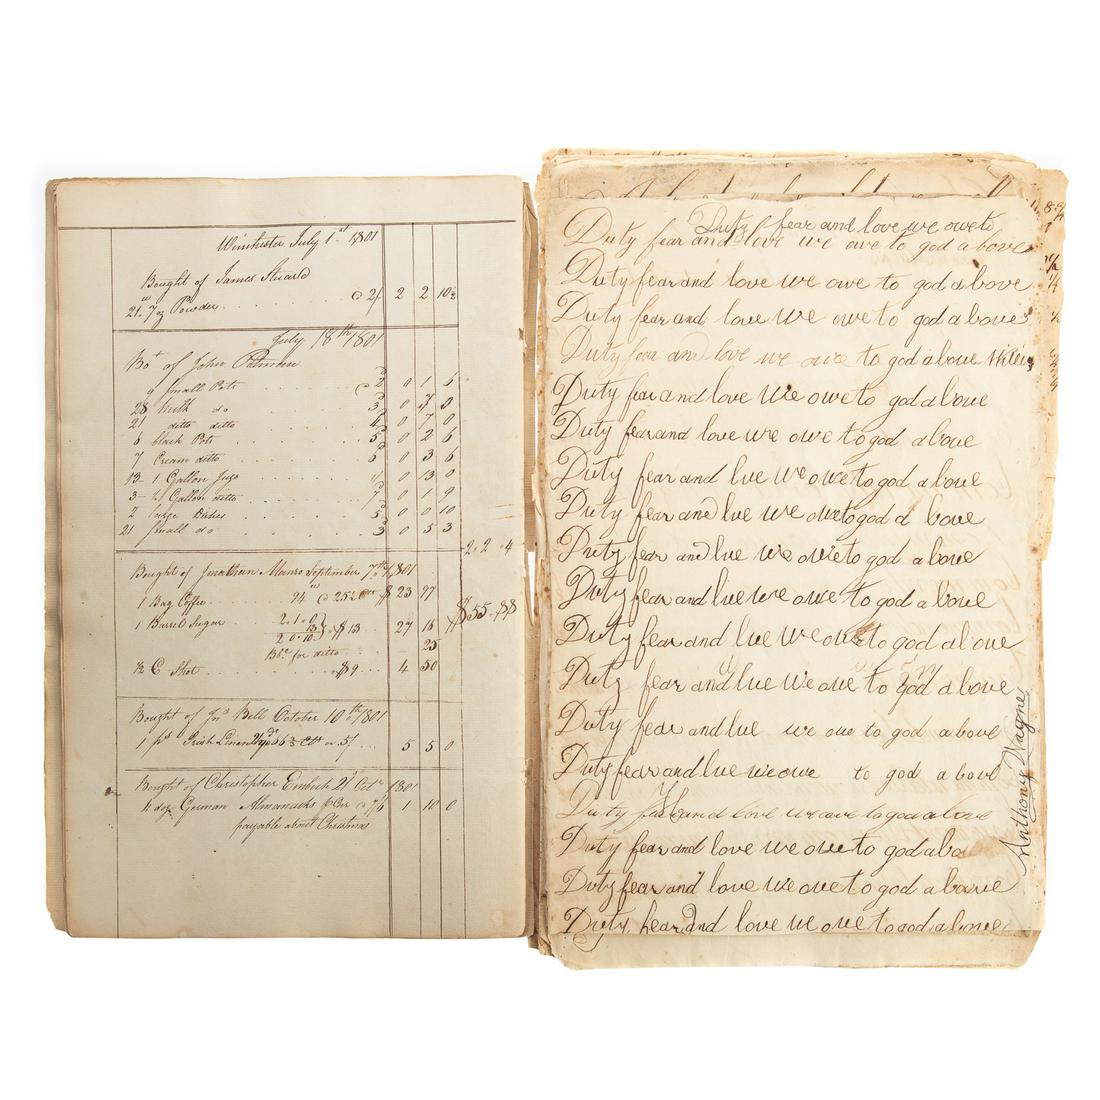 Winchester July 1st 1801
Bought of James Stuard
21 7 oz Powder . . . @ 2/ 2 2 10½
July 18th 1801
Bot of John Pitman
9 Small Pots . . . @ 2d 0 1 6
28 Milk do . . . 3d 0 7 0
21 ditto ditto . . . 4d 0 7 0
6 black Pots . . . 5d 0 2 6
7 Cream ditto . . . 6 0 3 6
13 - 1 Gallon Jugs . . . 1/ 0 13 0
3 - ½ Gallon ditto . . . 7d 0 1 9
2 large Dishes . . . 5d 0 0 10
21 Small do . . . 3d 0 5 3
2 . 2 . 4
Bought of Jonathan Munro September 7th 1801
1 Bag Coffee . . . 94 w @ 25 $ 23 97
1 Barrel Sugar . . . 2.1.0
13
2.0.10 $13 . . . 27 16
Bbl for ditto . . . 25
$55 . 88
½ C Shot . . . $9 . . . 4 50
Bought of Jno Bell October 10th 1801
1 ps Irish Linen 5/ . . . 5 5 0
Bought of Christopher Embich 21st Octr 1801
4 doz German Almanacks @ 7/6 1 10 0
payable about Christmas
Duty fear and love we owe to
Duty fear and love we owe to god above
Duty fear and love we owe to god above
Duty fear and love we owe to god above
Duty fear and love we owe to god above
Duty fear and love we owe to god above
Duty fear and love we owe to god above
Duty fear and lve we owe to god a bove
Duty fear and lve we owe to god a bove
Duty fear and lve we owe to god above
Duty fear and lve we owe to god a bove
Duty fear and lve we owe to god al ove
Duty fear and lve we owe to god a bove
Duty fear and lve we owe to god a bove
Duty fear and lve we owe to god a bove
Duty fear and love we owe to god above
Duty fear and love we owe to god abo
Duty fear and love we owe to god a bove
Duty fear and love we owe to god above
Anthony Wayne